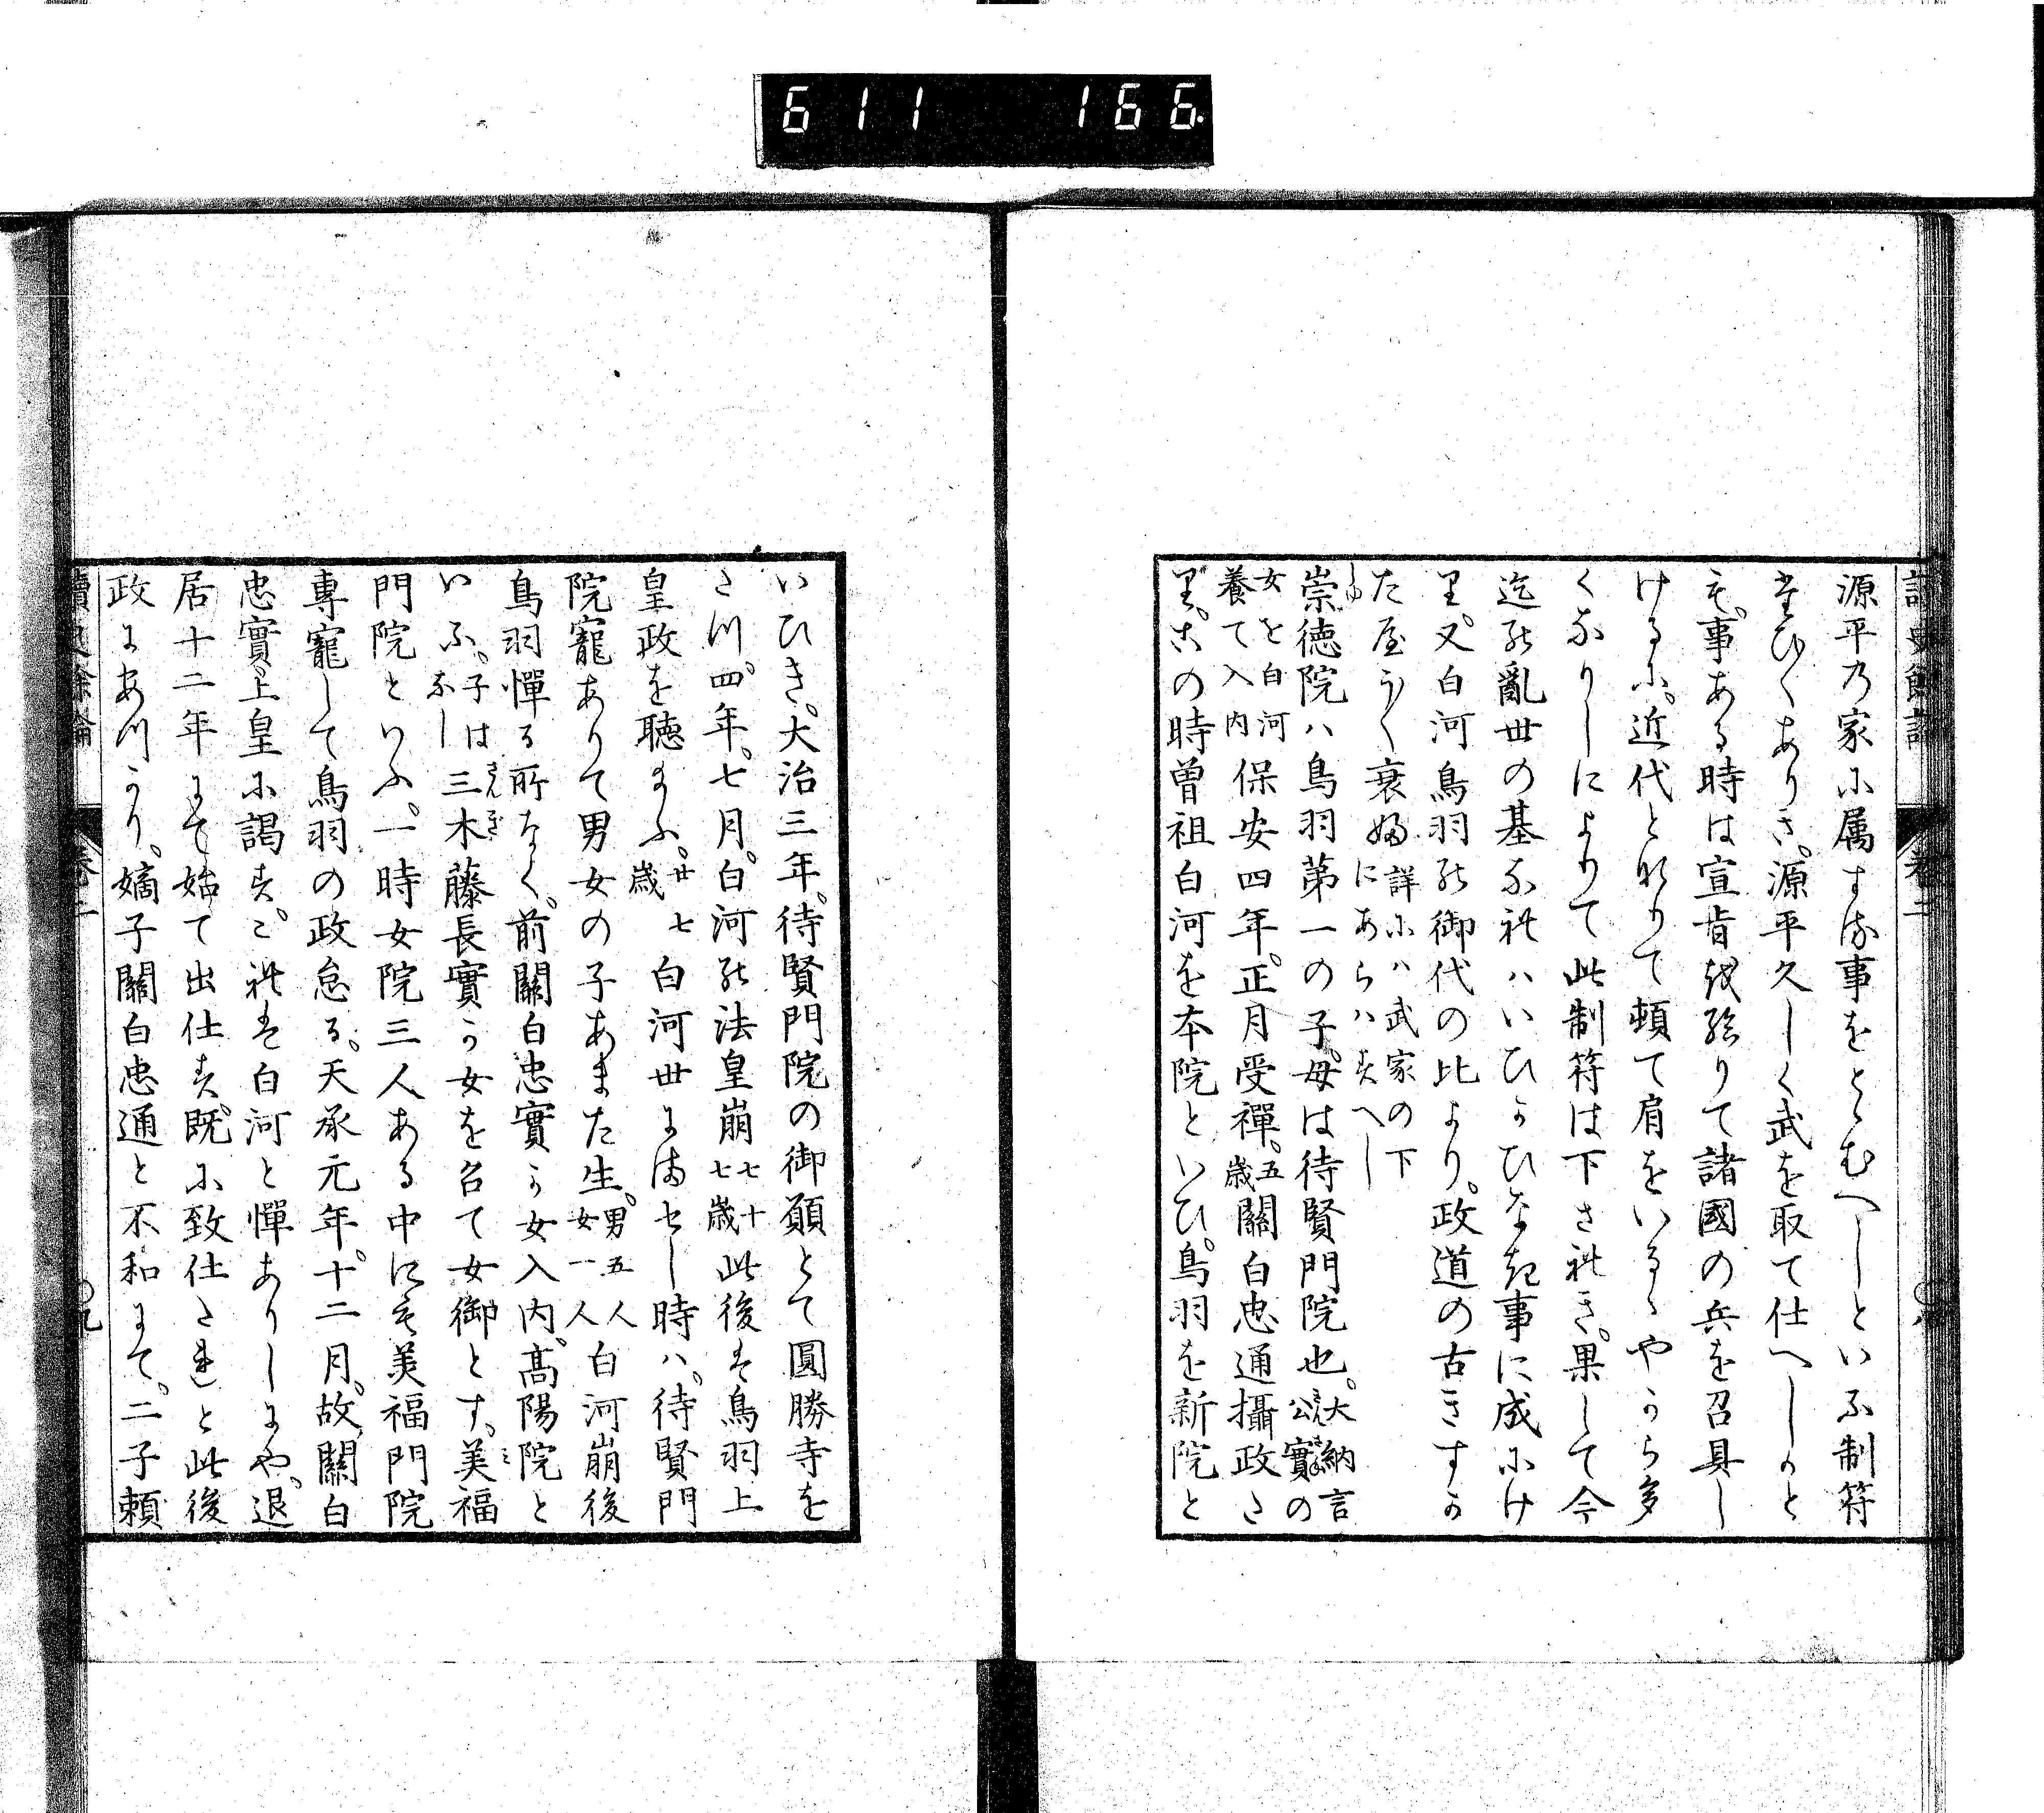 611 166
讀史餘論 卷二
源平乃家に属する事をとゝむへしといふ制符
たひ〱ありき。源平久しく武を取て仕へしかと
も。事ある時は宣旨を給りて諸國の兵を召具し
けるに。近代となりて頓て肩をいるゝやから多
くなりしによりて此制符は下されき。果して今
迄の亂世の基なれはいひかひなき事に成にけ
り。又白河鳥羽の御代の比より。政道の古きすか
たやう〱衰ふ 詳には武家の下にあらはすへし
崇徳院ハ鳥羽第一の子。母は待賢門院也。大納言公實の
女を白河養て入内 保安四年。正月受禪。五歳 關白忠通攝政た
り。この時曽祖白河を本院といひ。鳥羽を新院と
いひき。大治三年。待賢門院の御願とて圓勝寺を
たつ。四年。七月。白河の法皇崩 七十七歳 此後は鳥羽上
皇政を聴まふ。廿七歳 白河世にましませし時ハ。待賢門
院寵ありて男女の子あまた生。男五人女一人 白河崩後
鳥羽憚る所なく。前關白忠實か女入内。髙陽院と
いふ。子はなし 三木藤長實か女を召て女御とす。美福
門院といふ。一時女院三人ある中にも美福門院
專寵して鳥羽の政怠る。天承元年。十二月。故關白
忠實上皇に謁す。これは白河と憚ありしにや。退
居十二年にて始て出仕す。既に致仕たれと此後
政にあつかり。嫡子關白忠通と不和にて。二子頼
讀史餘論 卷二 〇九